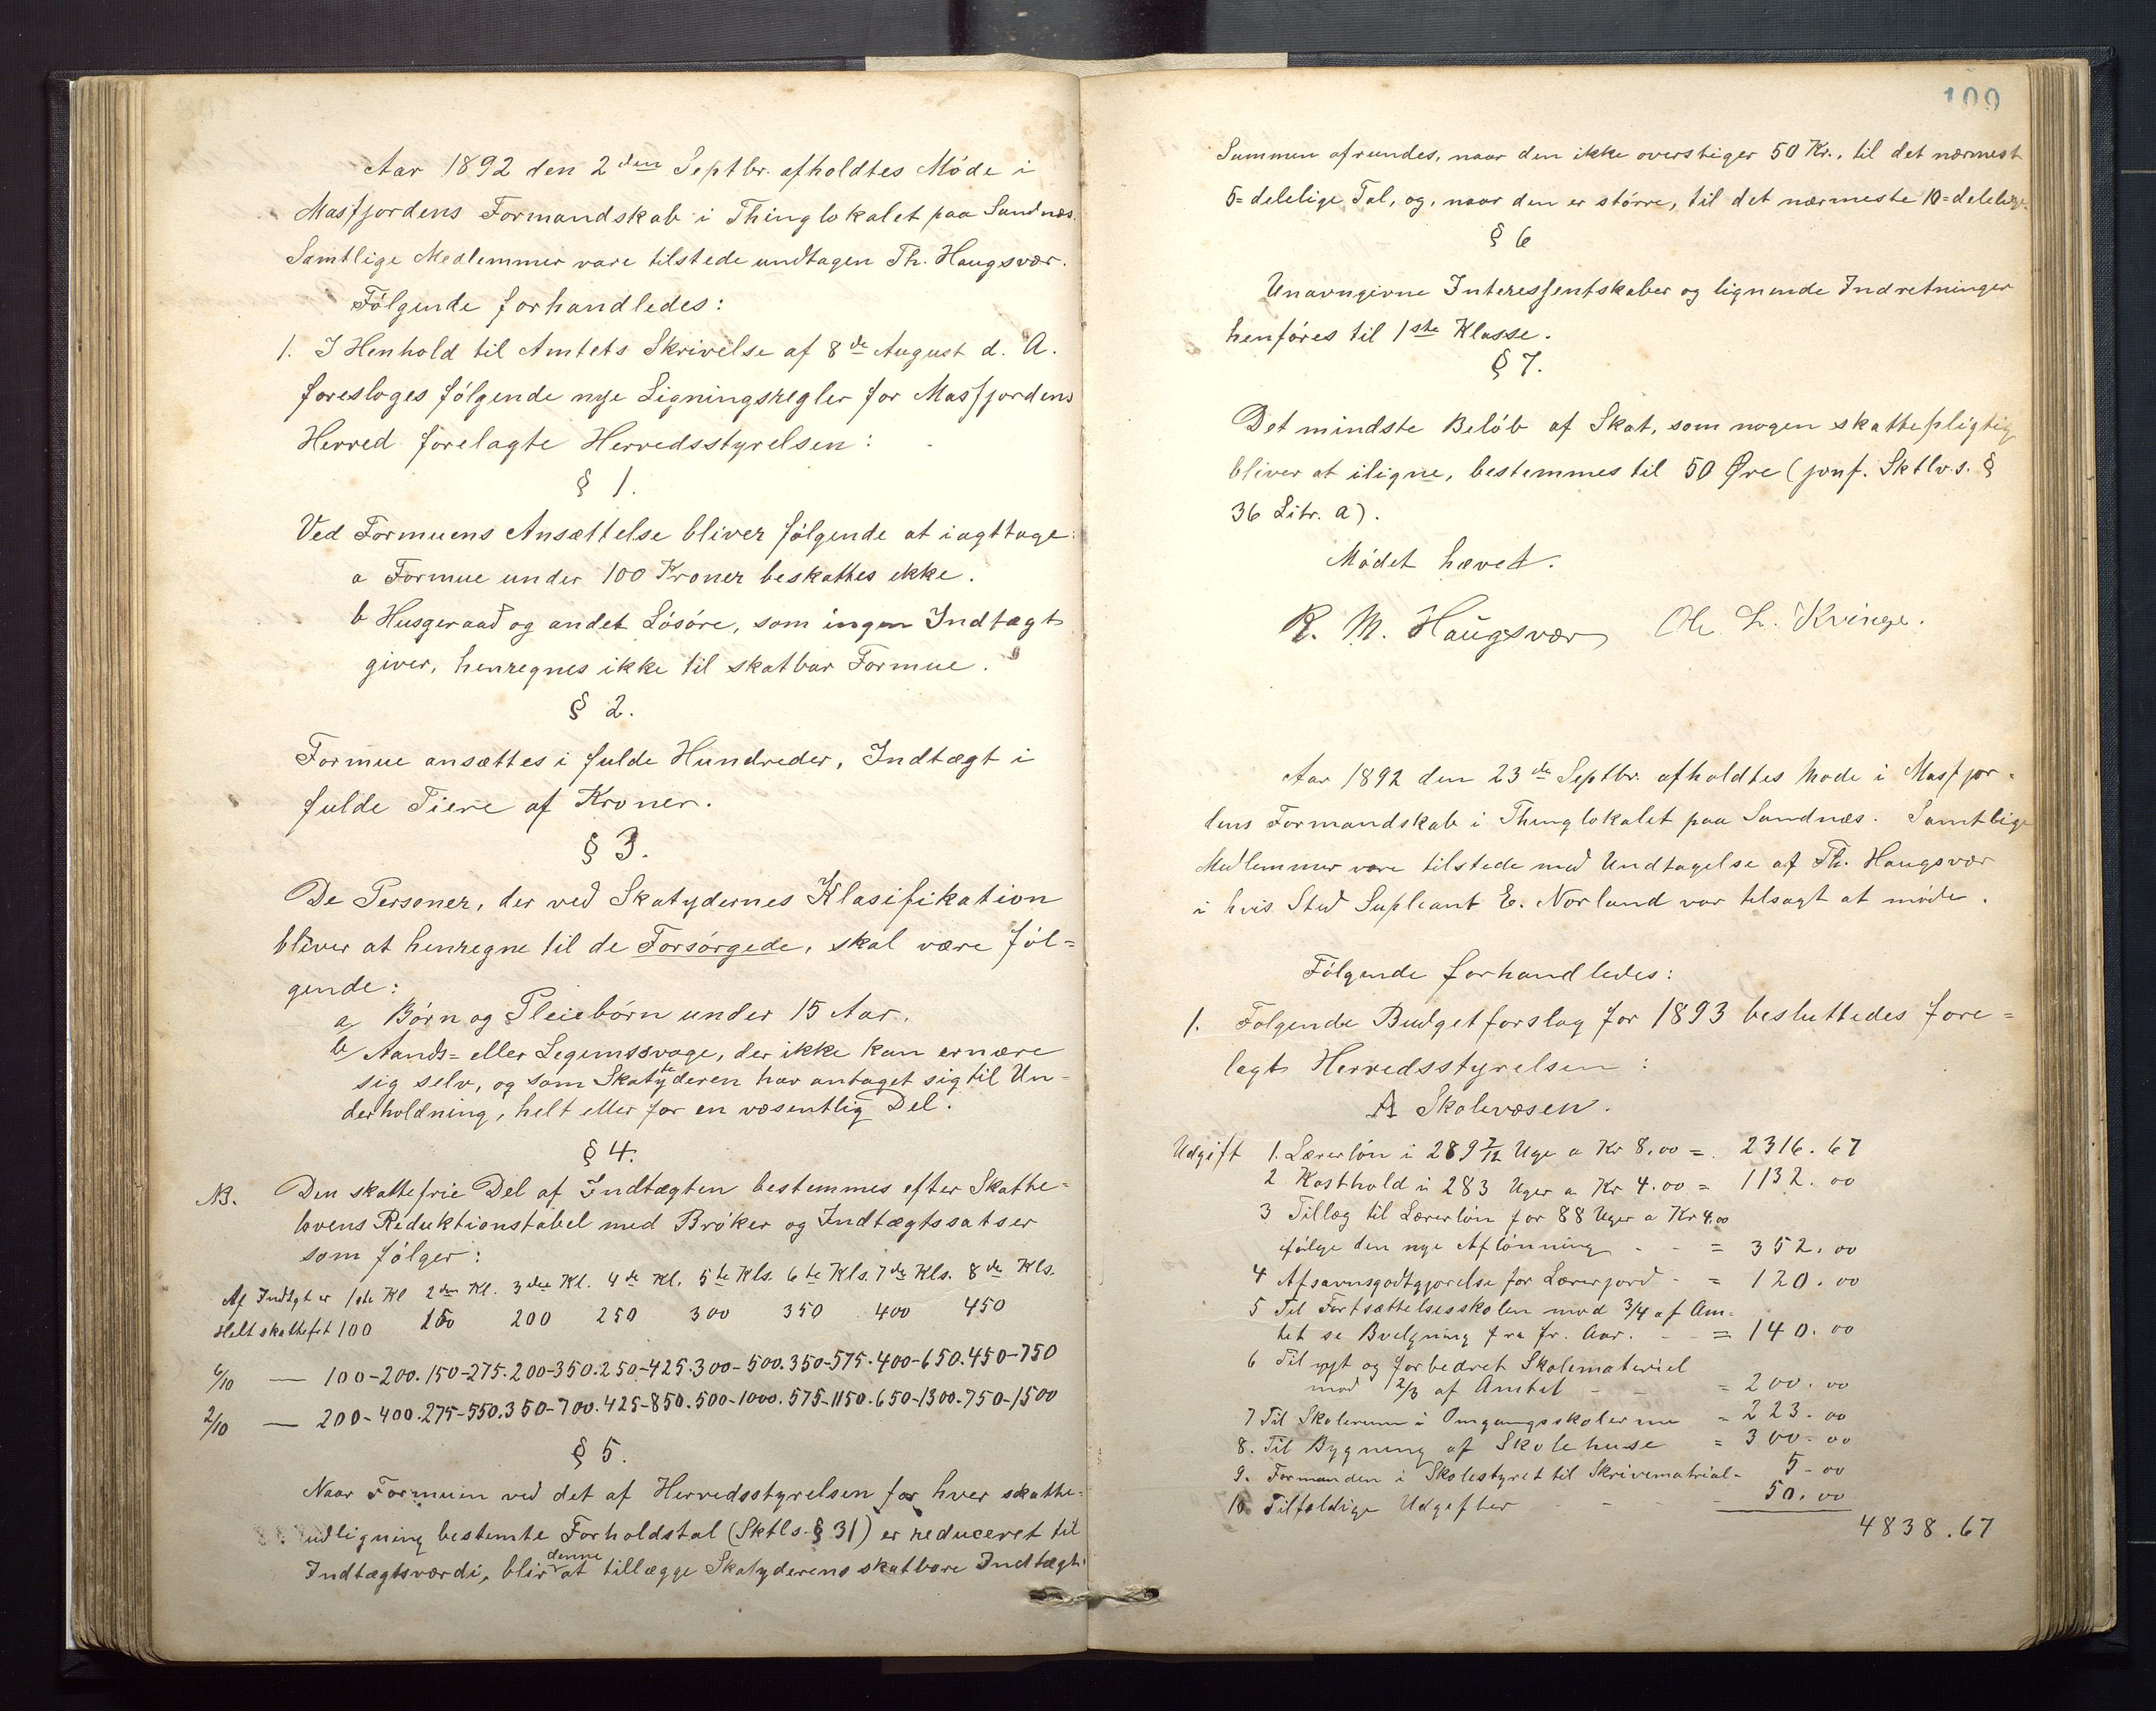 Aar 1892 den 2den Septbr. afholdtes Møde i
Masfjordens Formandskab i Thinglokalet paa Sandnæs.
Samtlige Medlemmer vare tilstede undtagen Th. Haugsvær.
Følgende forhandledes:
1. I Henhold til Amtets Skrivelse af 8de August d. A.
foresloges følgende nye Ligningsregler for Masfjordens
Herred forelagte Herredsstyrelsen:
§ 1.
Ved Formuens Ansættelse bliver følgende at iagttage:
a Formue under 100 Kroner beskattes ikke.
b Husgeraad og andet Løsøre, som ingen Indtægt
giver, henregnes ikke til skatbar Formue.
§ 2.
Formue ansættes i fulde Hundreder, Indtægt i
fulde Tiere af Kroner.
§ 3.
De Personer, der ved Skatydernes Klasifikation
bliver at henregne til de Forsørgede, skal være føl=
gende:
a, Børn og Pleiebørn under 15 Aar.
b Aands= eller Legemssvage, der ikke kan ernære
sig selv, og som Skatteyderen har antaget sig til Un-
derholdning, helt eller for en væsentlig Del.
§ 4.
NB. Den skattefrie Del af Indtægten bestemmes efter Skatte=
lovens Reduktionstabel med Brøker og Indtægtssatser
som følger:
Af Indtgt er 1ste Kl 2den Kl. 3die Kl. 4de Kl. 5te Kls. 6te Kls. 7de Kls. 8de Kls.
Helt skattefrt 100 150 200 250 300 350 400 450
6/10 — 100-200. 150-275. 200-350. 250-425. 300-500. 350-575. 400-650. 450-750
2/10 — 200-400. 275-550. 350-700. 425-850. 500-1000. 575-1150. 650-1300. 750-1500
§ 5.
Naar Formuen ved det af Herredsstyrelsen for hver skatte-
udligning bestemte Forholdstal (Sktls. § 31) er reduceret til
Indtægtsværdi, blir denne at tillægge Skatyderens skatbare Indtægt.
109
Summen afrundes, naar den ikke overstiger 50 Kr., til det nærmest
5=delelige Tal, og, naar den er større, til det nærmeste 10=delelige.
§ 6
Unavngivne Interessentskaber og lignende Indretninger
henføres til 1ste Klasse.
§ 7.
Det mindste Beløb af Skat, som nogen skattepligtig
bliver at iligne, bestemmes til 50 Øre (jvnf. Sktlvs. §
36 Litr. a).
Mødet hævet.
R. M. Haugsvær Ole L. Kvinge.
Aar 1892 den 23de Septbr. afholdtes Møde i Masfjor-
dens Formandskab i Thinglokalet paa Sandnæs. Samtlige
Medlemmer vare tilstede med Undtagelse af Th. Haugsvær
i hvis Sted Supleant E. Norland var tilsagt at møde.
Følgende forhandledes:
1. Følgende Budgetforslag for 1893 besluttedes fore=
lagt Herredsstyrelsen:
A Skolevæsen.
Udgift 1. Lærerløn i 289 7/12 Uge a Kr 8.00 = 2316.67
2 Kosthold i 283 Uger a Kr 4.00 = 1132.00
3 Tillæg til Lærerløn for 88 Uger a Kr 4.00
ifølge den nye Aflønning - - = 352.00
4 Afsavnsgodtgjørelse for Lærerjord - = 120.00
5 Til Fortsættelsesskolen mod 3/4 af Am-
tet se Bevilgning fra fr. Aar. - - = 140.00
6 Til nyt og forbedret Skolemateriel
mod 2/3 af Amtet - - = 200.00
7 Til Skolerum i Omgangsskolerne = 223.00
8. Til Bygning af Skolehuse = 300.00
9. Formanden i Skolestyret til Skrivematrial - 5-00
10 Tilfældige Udgifter - - - 50.00
4838.67